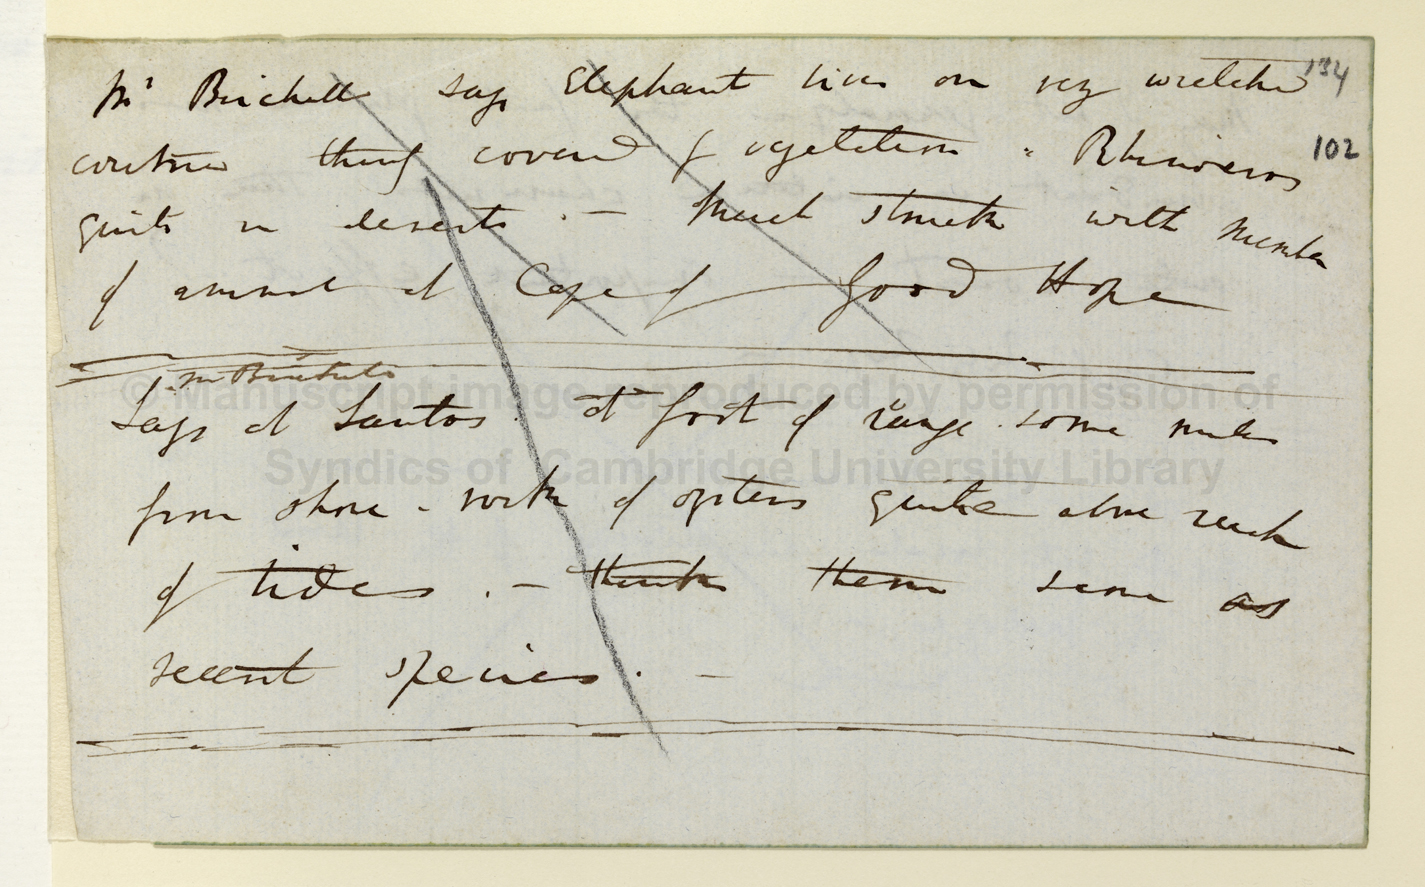 134
Mr Birchell says Elephant lives on very wretched
102
countries thinly covered of vegetation. Rhinoceros
quite in deserts. — Much struck with number
of animals at Cape of Good Hope
Mr Birchell
Says at Santos. at foot of range. some miles
from shore. rock of oysters quite above reach
of tides. — thinks them same as
recent species. —
© Manuscript image reproduced by permission of
Syndics of Cambridge University Library